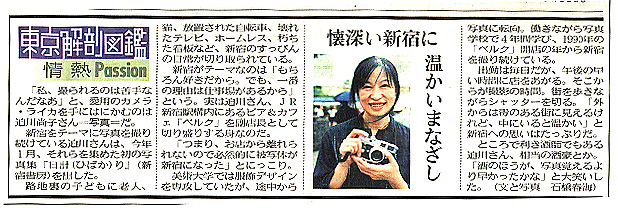 東京解剖図鑑
情熱Passion
懐深い新宿に
温かいまなざし
「私、撮られるのは苦手な
んだなあ」と、愛用のカメラ
・ライカを手にはにかむのは
迫川尚子さん＝写真＝だ。
新宿をテーマに写真を撮り
続けている迫川さんは、今年
1月、それらを集めた初の写
真集「日計（ひばかり）」（新
宿書房）を出した。
路地裏の子どもに老人、
猫、放置された自転車、壊れ
たテレビ、ホームレス、朽ち
た看板など、新宿のすっぴん
の日常が切り取られている。
新宿がテーマなのは「もち
ろん好きだから。でも、一番
の理由は仕事場があるから」
という。実は迫川さん、ＪＲ
新宿駅構内にあるビア＆カフ
ェ「ベルク」を副店長として
切り盛りする身なのだ。
「つまり、お店から離れら
れないので必然的に被写体が
新宿になった」とにっこり。
美術大学では服飾デザイン
を専攻していたが、途中から
写真に転向。働きながら写真
学校で4年間学び、1990年の
「ベルク」開店の年から新宿
を撮り続けている。
出勤は毎日だが、午後の早
い時間に店をあがる。そこか
らが撮影の時間。街を歩きな
がらシャッターを切る。「外
からは毒のある街に見えるけ
れど、中にいると温かい」と
新宿への思いはたっぷりだ。
ところで利き酒師でもある
迫川さん、相当の酒豪とか。
「酒のほうが、写真覚えるよ
り早かったかな」と大笑いし
た。（文と写真 石橋春海）